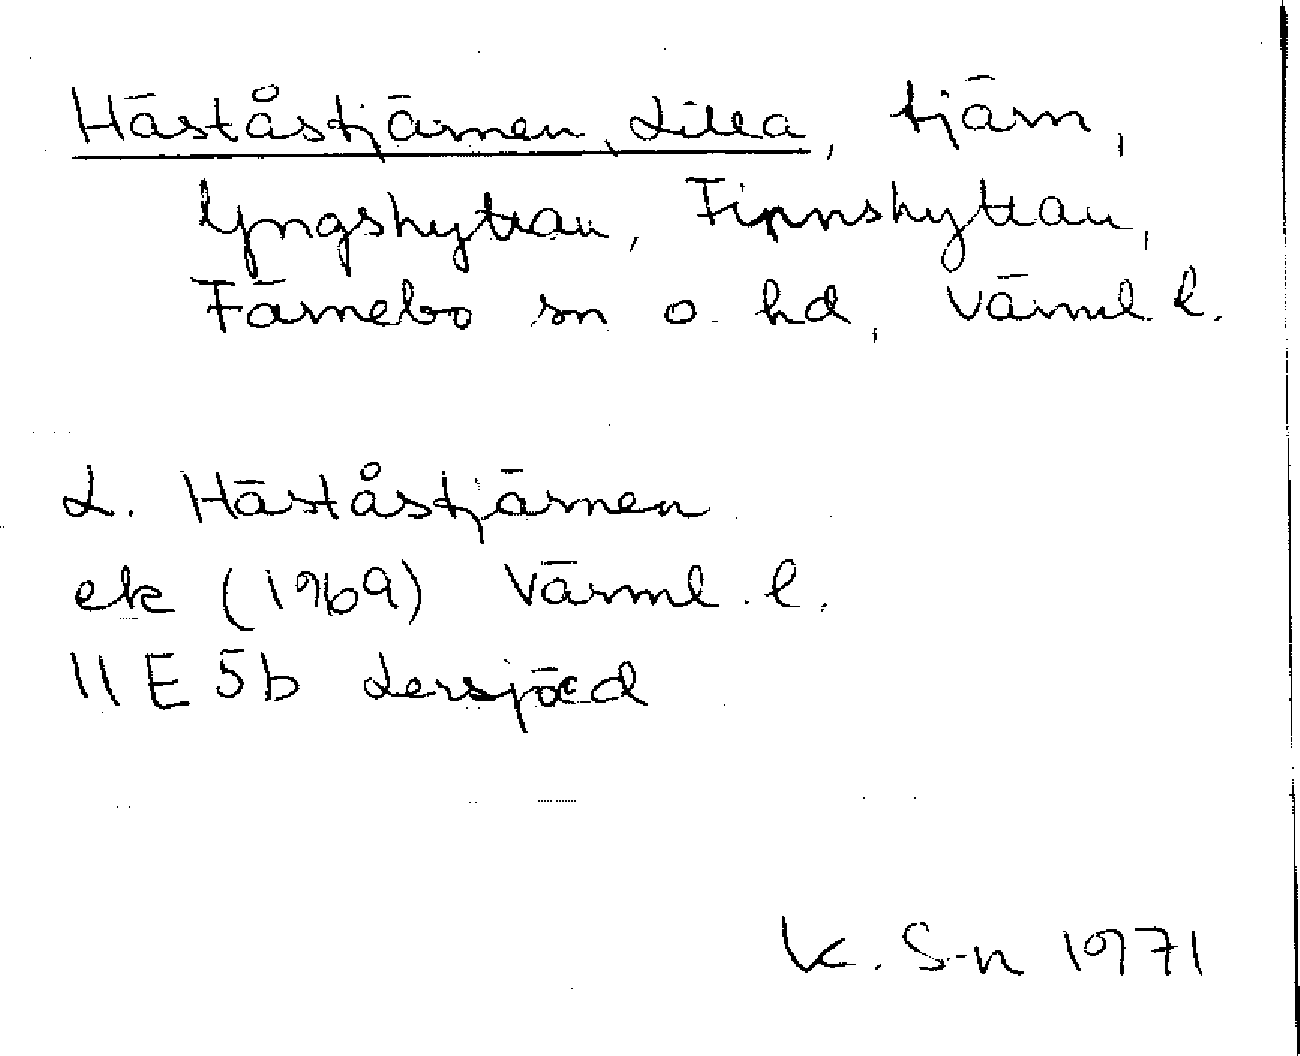 Häståstjärnen, Lilla, tjärn,
Yngshyttan, Finnshyttan,
Färnebo sn o. hd, Värml. l.
L. Häståstjärnen
ek (1969) Värml. l.
11E 5b Lersjöed
K. S-n 1971